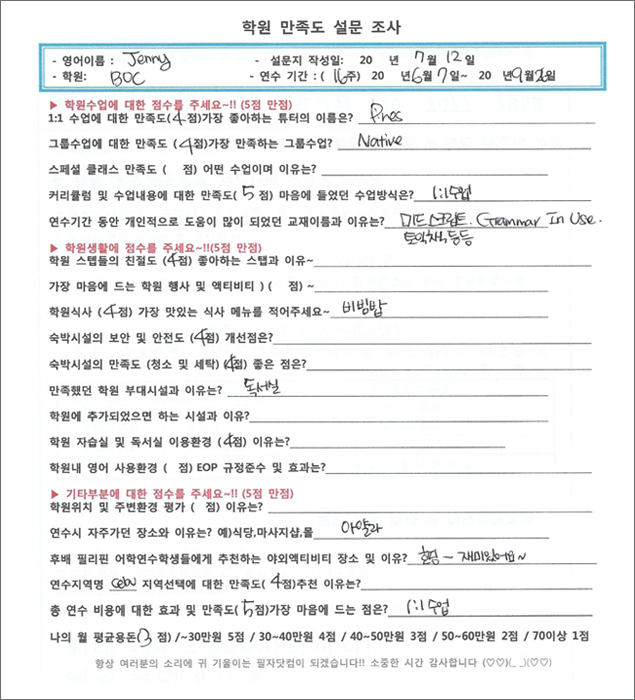 학원 만족도 설문 조사
- 영어이름 : Jenny - 설문지 작성일: 20 년 7월 12일
- 학원: BOC - 연수 기간 : ( 16주) 20 년6월7일~ 20 년9월26일
▶ 학원수업에 대한 점수를 주세요~!! (5점 만점)
1:1 수업에 대한 만족도(4점)가장 좋아하는 튜터의 이름은? Pnes
그룹수업에 대한 만족도 (4점)가장 만족하는 그룹수업? Native
스페셜 클래스 만족도 ( 점) 어떤 수업이며 이유는?
커리큘럼 및 수업내용에 대한 만족도( 5 점) 마음에 들었던 수업방식은? 1:1수업
연수기간 동안 개인적으로 도움이 많이 되었던 교재이름과 이유는? 미드스크립트. Grammar In Use.
토익책 등등
▶ 학원생활에 점수를 주세요~!!(5점 만점)
학원 스텝들의 친절도 (4점) 좋아하는 스탭과 이유~
가장 마음에 드는 학원 행사 및 액티비티 ) ( 점) ~
학원식사 (4점) 가장 맛있는 식사 메뉴를 적어주세요~ 비빔밥
숙박시설의 보안 및 안전도 (4점) 개선점은?
숙박시설의 만족도 (청소 및 세탁) (4점) 좋은 점은?
만족했던 학원 부대시설과 이유는? 독서실
학원에 추가되었으면 하는 시설과 이유?
학원 자습실 및 독서실 이용환경 (4점) 이유는?
학원내 영어 사용환경 ( 점) EOP 규정준수 및 효과는?
▶ 기타부분에 대한 점수를 주세요~!! (5점 만점)
학원위치 및 주변환경 평가 ( 점) 이유는?
연수시 자주가던 장소와 이유는? 예)식당,마사지샵,몰 아얄라
후배 필리핀 어학연수학생들에게 추천하는 야외액티비티 장소 및 이유? 호핑 ~ 재미있어요~
연수지역명 cebu 지역선택에 대한 만족도( 4점)추천 이유는?
총 연수 비용에 대한 효과 및 만족도(5점)가장 마음에 드는 점은? 1:1수업
나의 월 평균용돈(3 점) /~30만원 5점 / 30~40만원 4점 / 40~50만원 3점 / 50~60만원 2점 / 70이상 1점
항상 여러분의 소리에 귀 기울이는 필자닷컴이 되겠습니다!! 소중한 시간 감사합니다 (♡♡)(_ _)(♡♡)